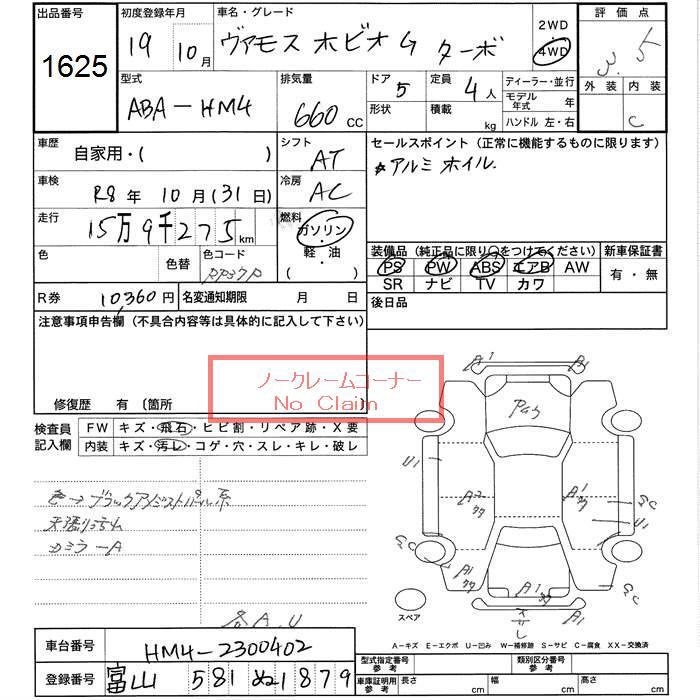 出品番号 初度登録年月 車名・グレード 2WD 評価点
1625 19 10月 ヴァモス ホビオ G ターボ 4WD 3.5
型式 排気量 ドア 5 定員 4人 ディーラー・並行 外装 内装
ABA-HM4 660 CC 形状 積載 kg モデル年式 年
ハンドル 左・右 C
車歴 自家用・( ) シフト AT セールスポイント（正常に機能するものに限ります）
車検 R8年 10月(31日) 冷房 AC ☆アルミホイル.
走行 15万9千275km 燃料 ガソリン・軽・油 ( )
色 色替 色コード PP37P 装備品（純正品に限り○をつけてください） 新車保証書
PS PW ABS エアB AW 有・無
SR ナビ TV カワ
R券 10,360円 名変通知期限 月 日 後日品
注意事項申告欄（不具合内容等は具体的に記入して下さい）
ノークレームコーナー
No Claim
修復歴 有 〔箇所
検査員記入欄 FW キズ・飛石・ヒビ割・リペア跡・X要
内装 キズ・汚レ・コゲ・穴・スレ・キレ・破レ
色→ブラックアメジストパール系
カミラーA
各A.U
A1 A1
U1
A1
A1
スペア
A-キズ E-エクボ U-凹み W-補修跡 S-サビ C-腐食 XX-交換済
車台番号 HM4-2300402
登録番号 富山 581 ぬ 1879
型式指定番号 参考 類別区分番号 参考
車庫証明用 参考 長さ cm 幅 cm 高さ cm